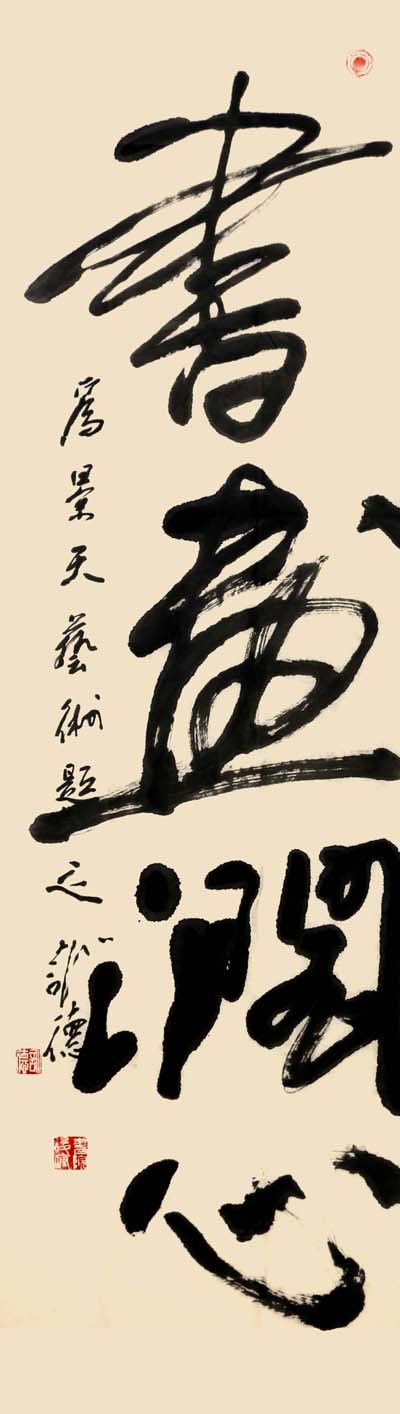 書畫潤心
為景天藝術題之 德